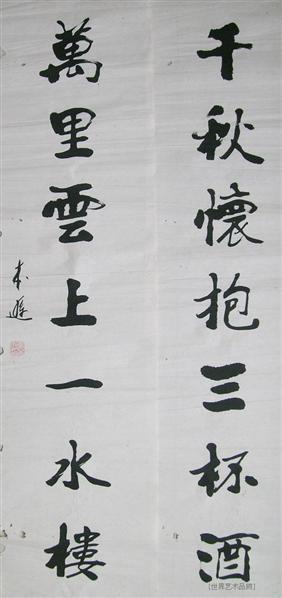 千秋懷抱三杯酒
萬里雲上一水樓
[世界艺术品網]